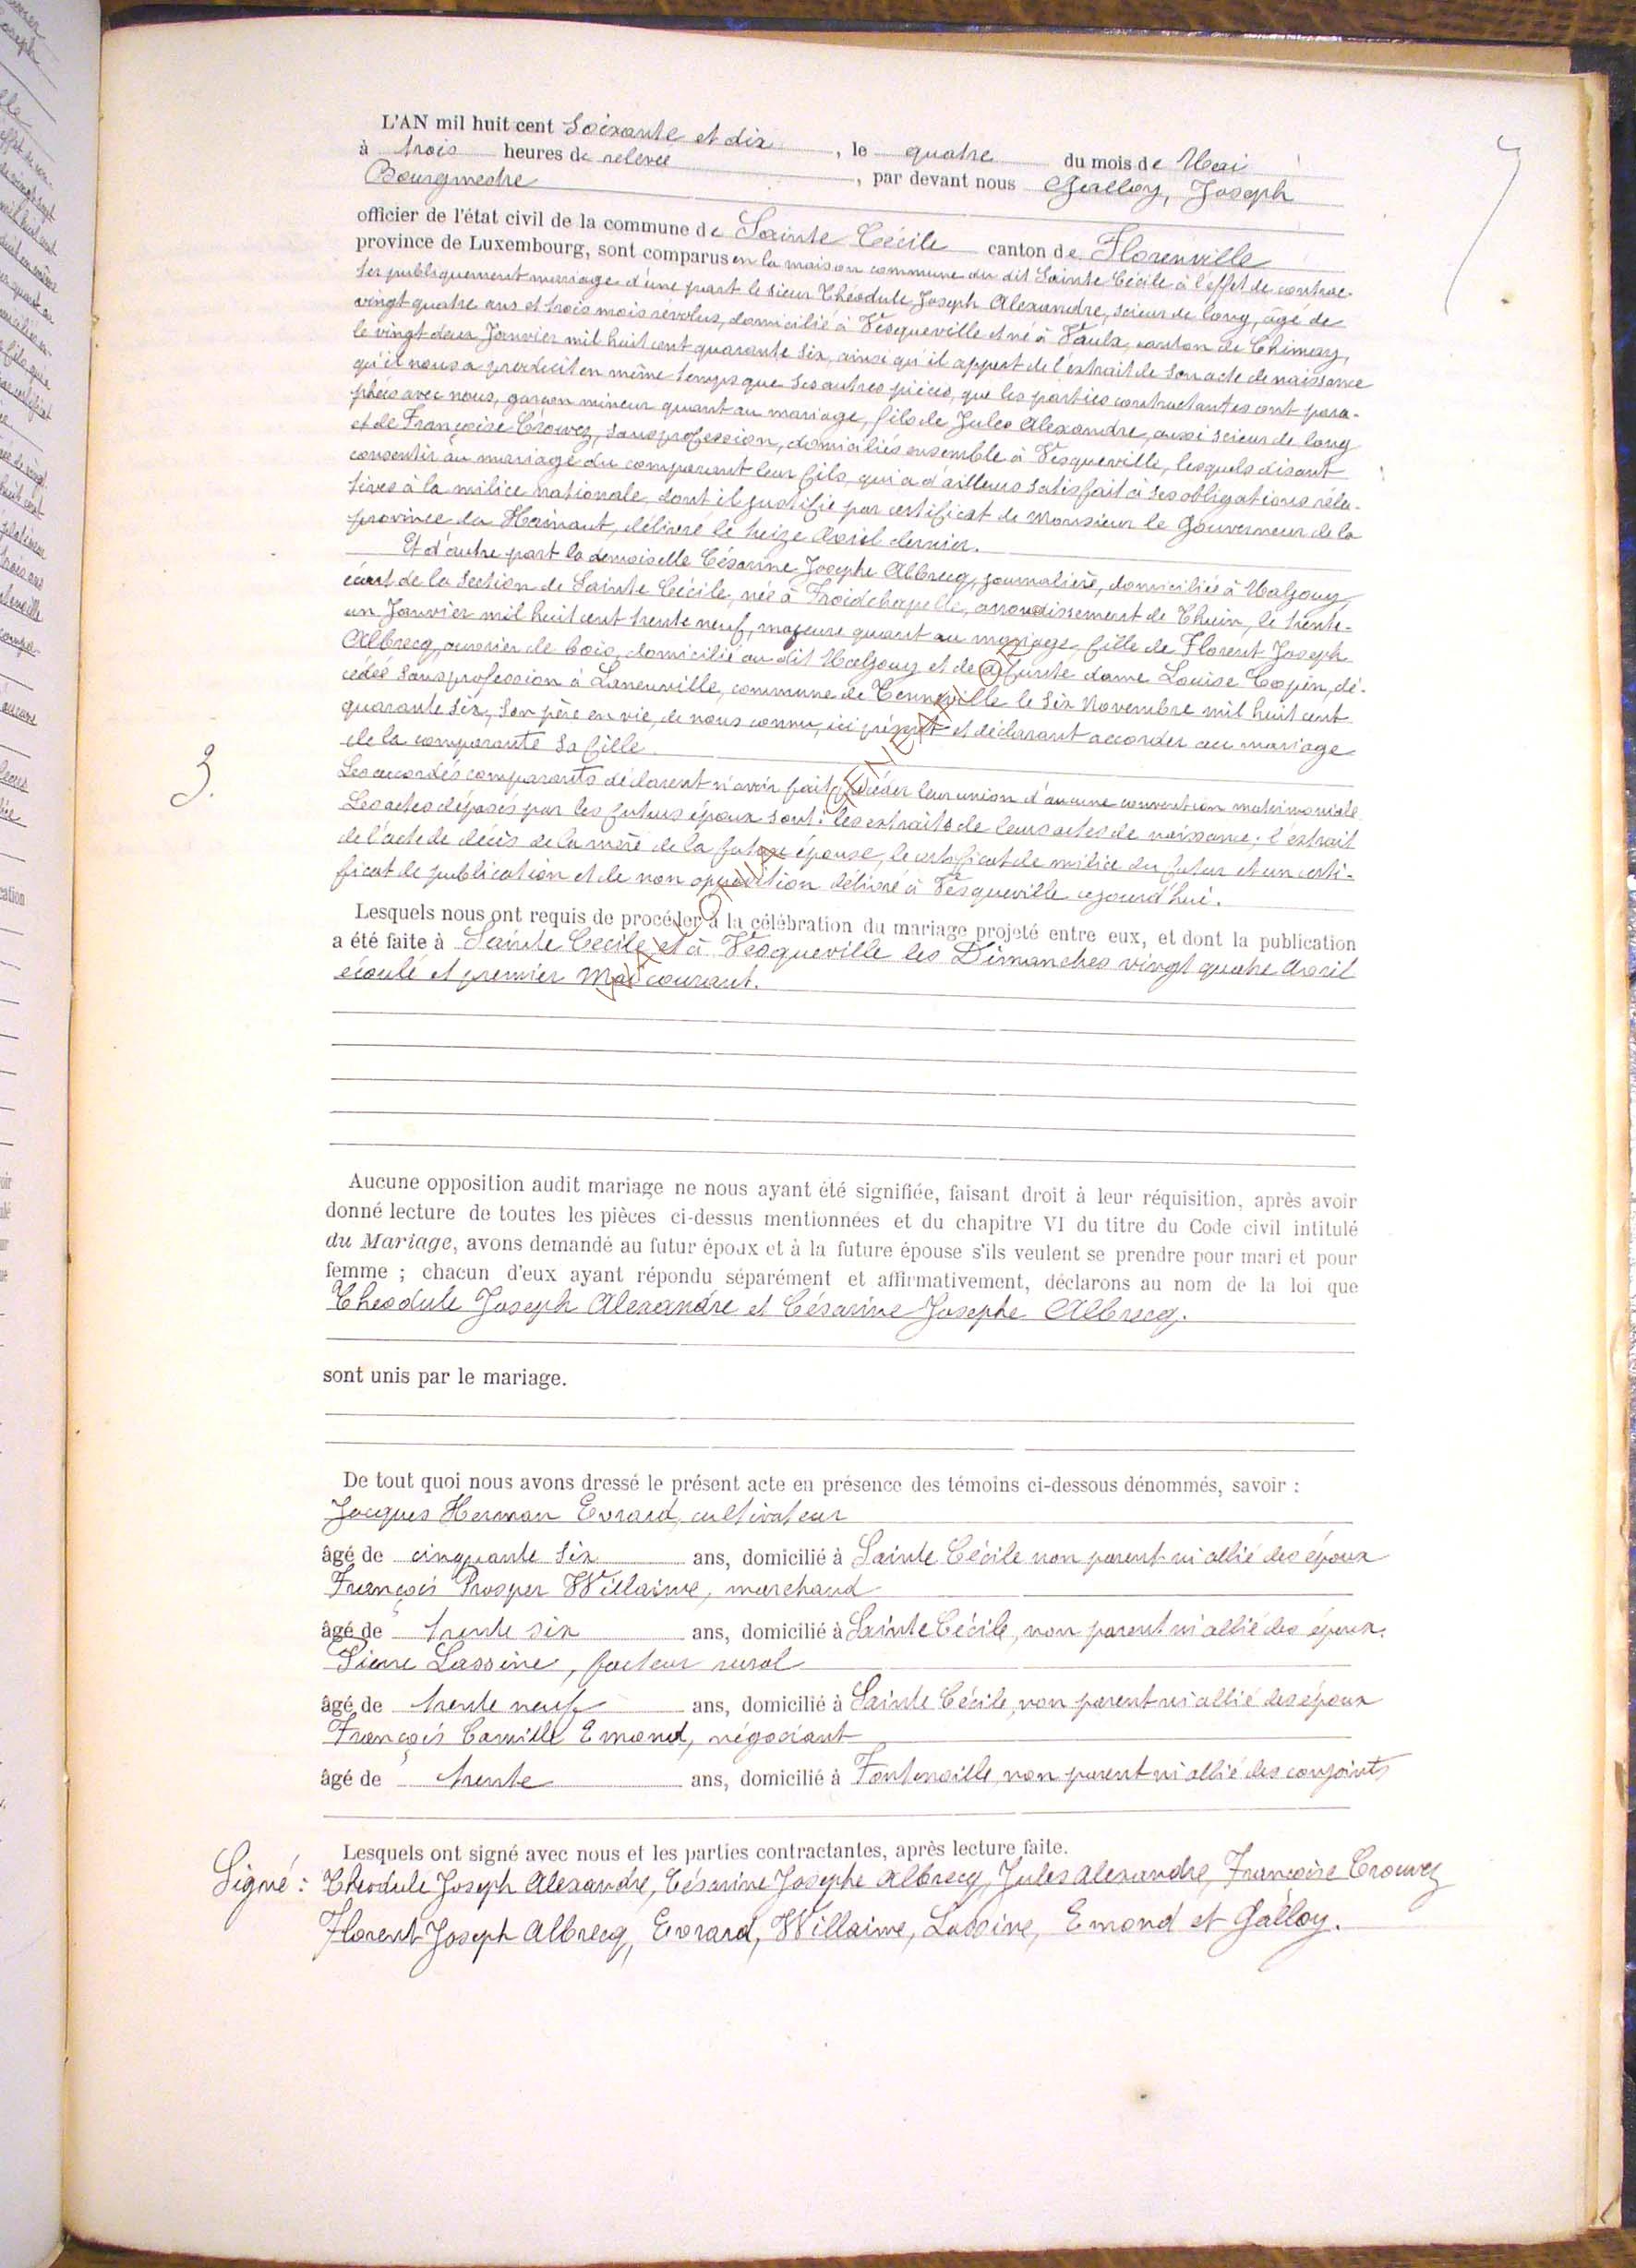 L'AN mil huit cent Soixante et dix, le quatre du mois de Mai
à trois heures de relevée, par devant nous Galloy, Joseph
Bourgmestre
officier de l'état civil de la commune de Sainte Cécile canton de Florenville
province de Luxembourg, sont comparus en la maison commune du dit Sainte Cécile à l'effet de contrac-
ter publiquement mariage d'une part le sieur Théodule Joseph Alexandre, scieur de long, âgé de
vingt quatre ans et trois mois révolus, domicilié à Vesqueville et né à Vaulx, canton de Chimay,
le vingt deux Janvier mil huit cent quarante six, ainsi qu'il appert de l'extrait de son acte de naissance
qu'il nous a produit en même temps que ses autres pièces, que les parties contractantes ont para-
phées avec nous, garçon mineur quant au mariage, fils de Jules Alexandre, aussi scieur de long
et de Françoise Crouvez, sans profession, domiciliés ensemble à Vesqueville, lesquels disant
consentir au mariage du comparant leur fils, qui a d'ailleurs satisfait à ses obligations rela-
tives à la milice nationale, dont il justifie par certificat de Monsieur le Gouverneur de la
province du Hainaut, délivré le treize Avril dernier.
Et d'autre part la demoiselle Césarine Josephe Albrecq, journalière, domiciliée à Waljouy,
écart de la Section de Sainte Cécile, née à Froidchapelle, arrondissement de Thuin, le trente-
un Janvier mil huit cent trente neuf, majeure quant au mariage, fille de Florent Joseph
Albrecq, ouvrier de bois, domicilié au dit Waljouy et de défunte dame Louise Copin, dé-
cédée sans profession à Laneuville, commune de Tenneville le six Novembre mil huit cent
quarante six, son père en vie, de nous connu, ici présent et déclarant accorder au mariage
de la comparante sa fille.
3.
Les accordés comparants déclarent n'avoir fait précéder leur union d'aucune convention matrimoniale
Les actes déposés par les futurs époux sont: les extraits de leurs actes de naissance; l'extrait
de l'acte de décès de la mère de la future épouse, le certificat de milice du futur et un certi-
ficat de publication et de non opposition délivré à Vesqueville cejourd'hui.
Lesquels nous ont requis de procéder à la célébration du mariage projeté entre eux, et dont la publication
a été faite à Sainte Cecile et à Vesqueville les Dimanches vingt quatre Avril
écoulé et premier Mai courant.
Aucune opposition audit mariage ne nous ayant été signifiée, faisant droit à leur réquisition, après avoir
donné lecture de toutes les pièces ci-dessus mentionnées et du chapitre VI du titre du Code civil intitulé
du Mariage, avons demandé au futur époux et à la future épouse s'ils veulent se prendre pour mari et pour
femme ; chacun d'eux ayant répondu séparément et affirmativement, déclarons au nom de la loi que
Théodule Joseph Alexandre et Césarine Josephe Albrecq.
sont unis par le mariage.
De tout quoi nous avons dressé le présent acte en présence des témoins ci-dessous dénommés, savoir :
Jacques Herman Evrard, cultivateur
âgé de cinquante six ans, domicilié à Sainte Cécile non parent ni allié des époux
François Prosper Willaime, marchand
âgé de trente six ans, domicilié à Sainte Cécile, non parent ni allié des époux.
Pierre Lassine, facteur rural
âgé de trente neuf ans, domicilié à Sainte Cécile, non parent ni allié des époux
François Camille Emond, négociant
âgé de trente ans, domicilié à Fontenoille, non parent ni allié des conjoints
Lesquels ont signé avec nous et les parties contractantes, après lecture faite.
Signé: Théodule Joseph Alexandre, Césarine Josephe Albrecq, Jules Alexandre, Françoise Crouvez
Florent Joseph Albrecq, Evrard, Willaime, Lassine, Emond et Galloy.